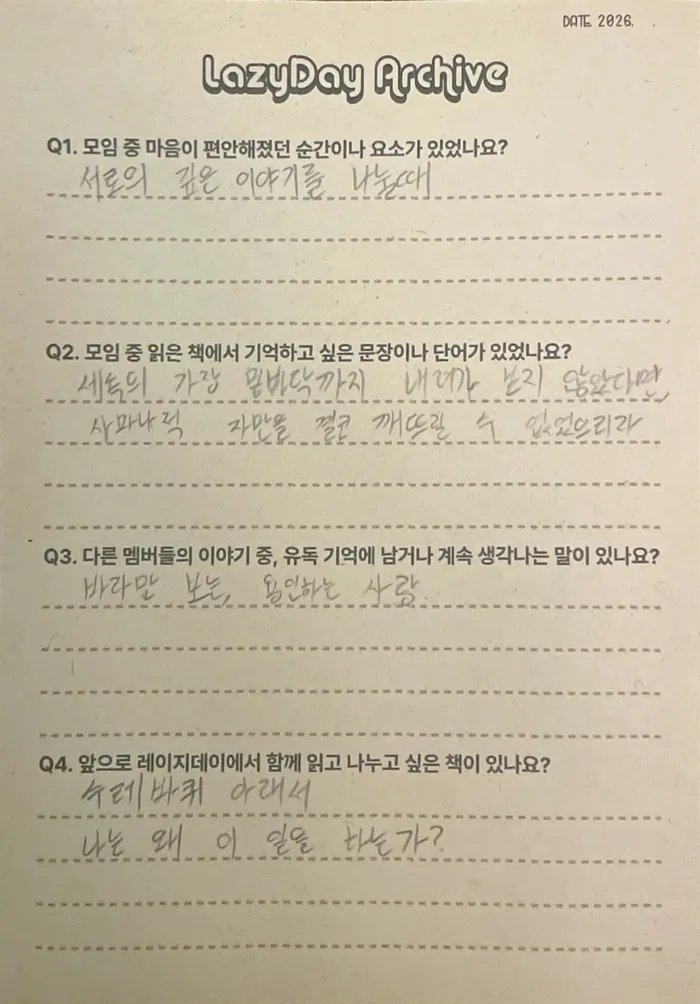 DATE 2026. .
LazyDay Archive
Q1. 모임 중 마음이 편안해졌던 순간이나 요소가 있었나요?
서로의 깊은 이야기를 나눌때
Q2. 모임 중 읽은 책에서 기억하고 싶은 문장이나 단어가 있었나요?
세속의 가장 밑바닥까지 내려가 보지 않았다면,
사마나적 자만을 결코 깨뜨릴 수 없었으리라
Q3. 다른 멤버들의 이야기 중, 유독 기억에 남거나 계속 생각나는 말이 있나요?
바라만 보는, 용인하는 사람.
Q4. 앞으로 레이지데이에서 함께 읽고 나누고 싶은 책이 있나요?
수레바퀴 아래서
나는 왜 이 일을 하는가?